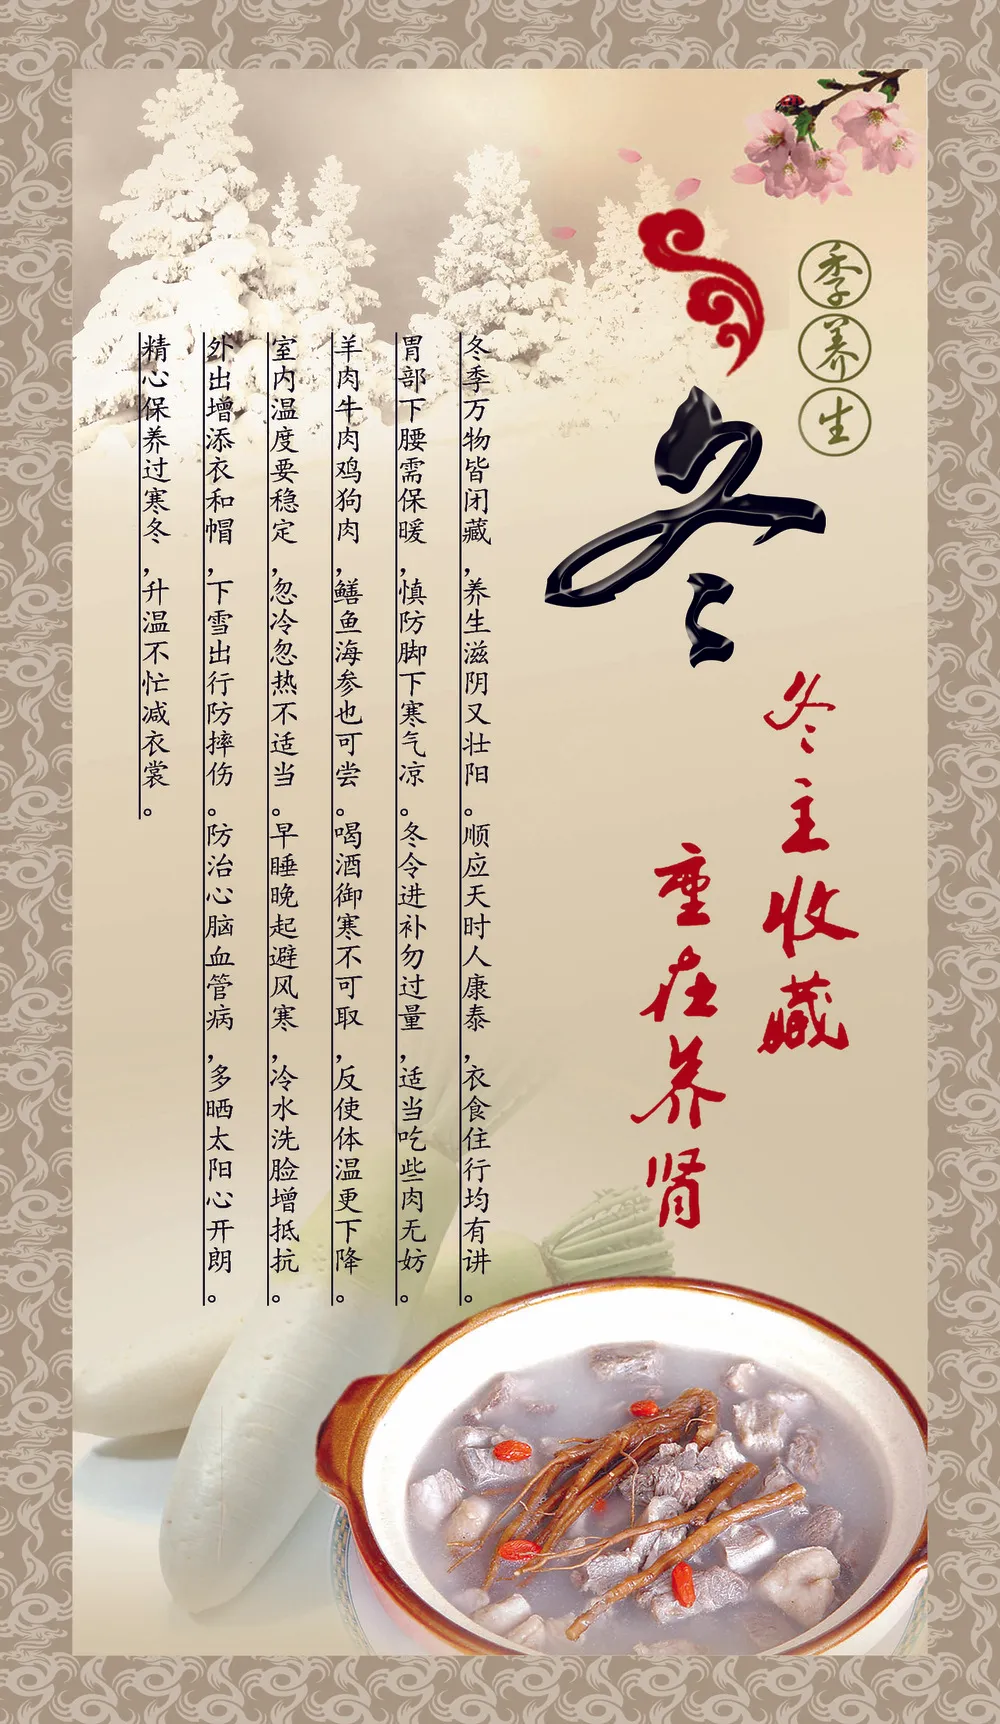 冬
季养生
冬主收藏
重在养肾
冬季万物皆闭藏，养生滋阴又壮阳。顺应天时人康泰，衣食住行均有讲。
胃部下腰需保暖，慎防脚下寒气凉。冬令进补勿过量，适当吃些肉无妨。
羊肉牛肉鸡狗肉，鳝鱼海参也可尝。喝酒御寒不可取，反使体温更下降。
室内温度要稳定，忽冷忽热不适当。早睡晚起避风寒，冷水洗脸增抵抗。
外出增添衣和帽，下雪出行防摔伤。防治心脑血管病，多晒太阳心开朗。
精心保养过寒冬，升温不忙减衣裳。